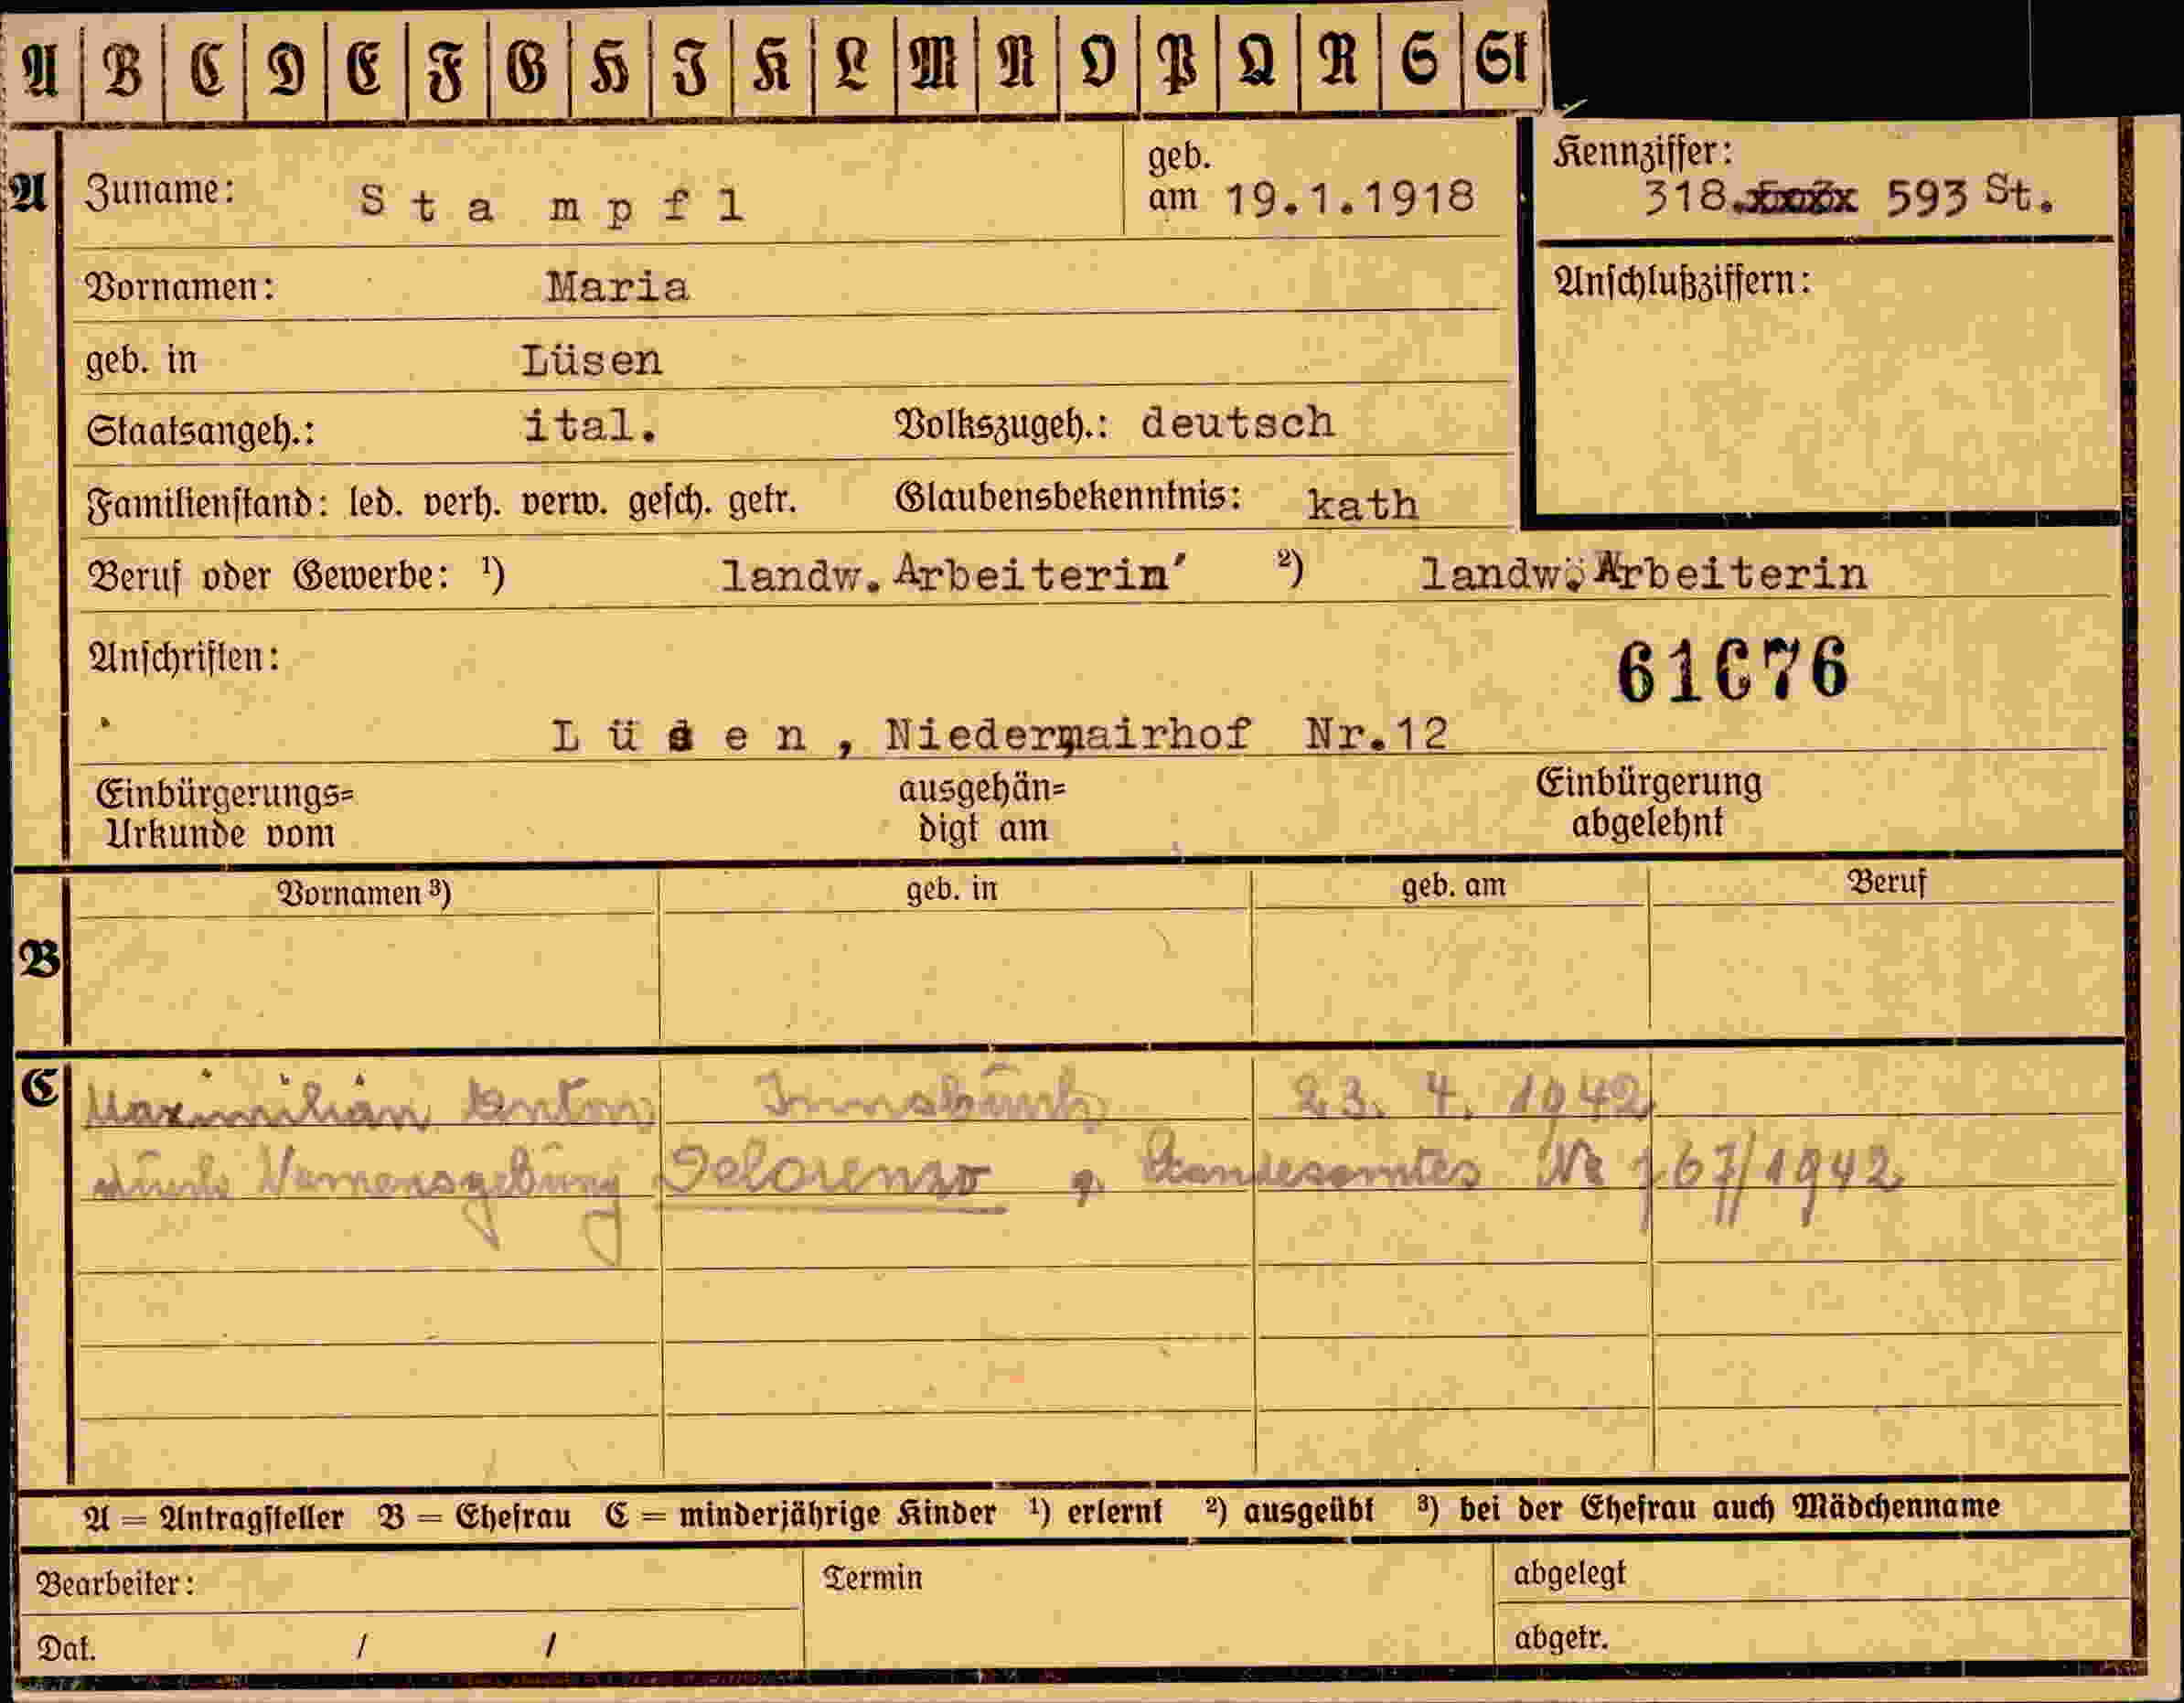 A B C D E F G H I K L M N O P Q R S St
A
Zuname: Stampfl
geb. am 19.1.1918
Kennziffer: 318. 593 St.
Vornamen: Maria
Anschlußziffern:
geb. in Lüsen
Staatsangeh.: ital. Volkszugeh.: deutsch
Familienstand: led. verh. verw. gesch. getr. Glaubensbekenntnis: kath
Beruf oder Gewerbe: ¹) landw. Arbeiterin ²) landw. Arbeiterin
Anschriften: 61676
Lüsen, Niedermairhof Nr.12
Einbürgerungs= Urkunde vom
ausgehän= digt am
Einbürgerung abgelehnt
B
Vornamen ³) geb. in geb. am Beruf
C
Maximilian Anton Innsbruck 23. 4. 1942
durch Namensgebung Delorenzo Standesamtes No 767/1942
A = Antragsteller B = Ehefrau C = minderjährige Kinder ¹) erlernt ²) ausgeübt ³) bei der Ehefrau auch Mädchenname
Bearbeiter: Termin abgelegt
Dat. / / abgetr.